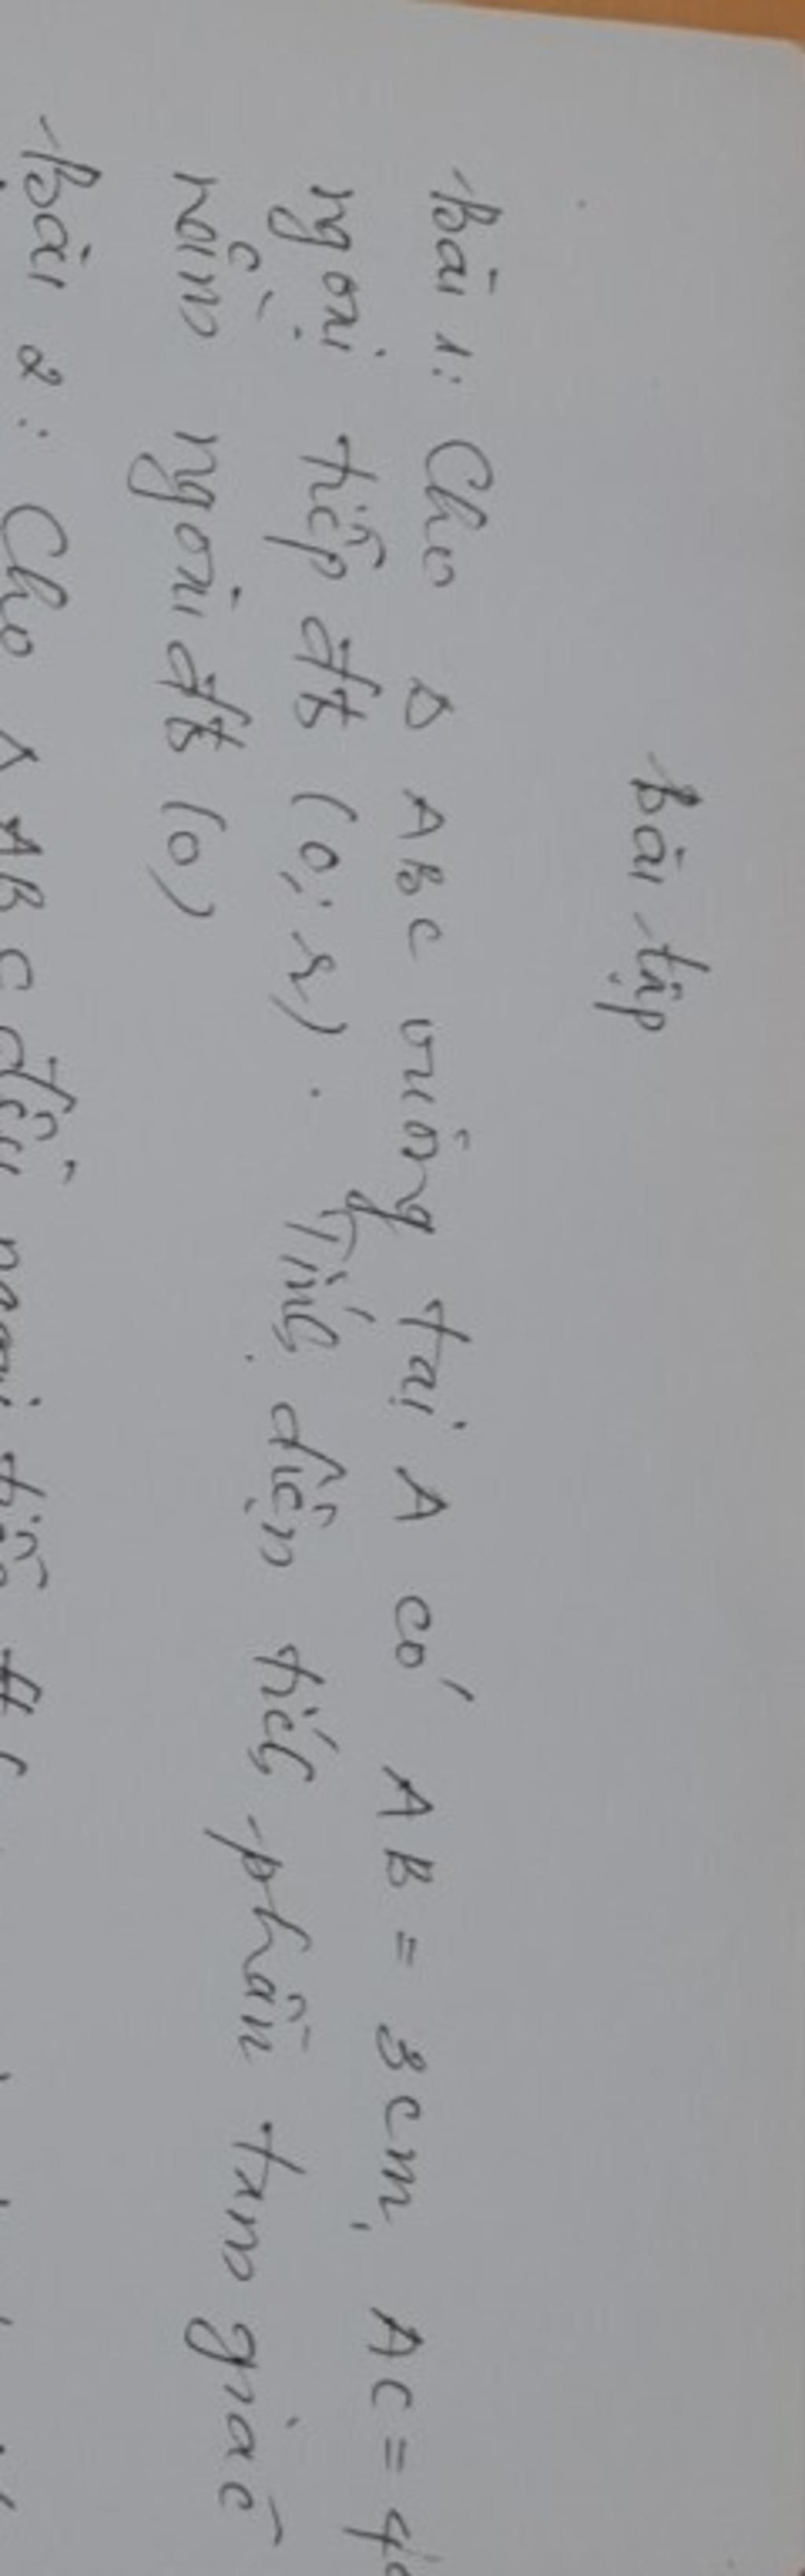 Bài tập
Bài 1: Cho Δ ABC vuông tại A có AB = 3cm, AC = 4c
ngoại tiếp đtr (O; r). Tính diện tích phần tam giác
nằm ngoài đtr (O)
Bài 2: Cho Δ ABC đều ngoại tiếp